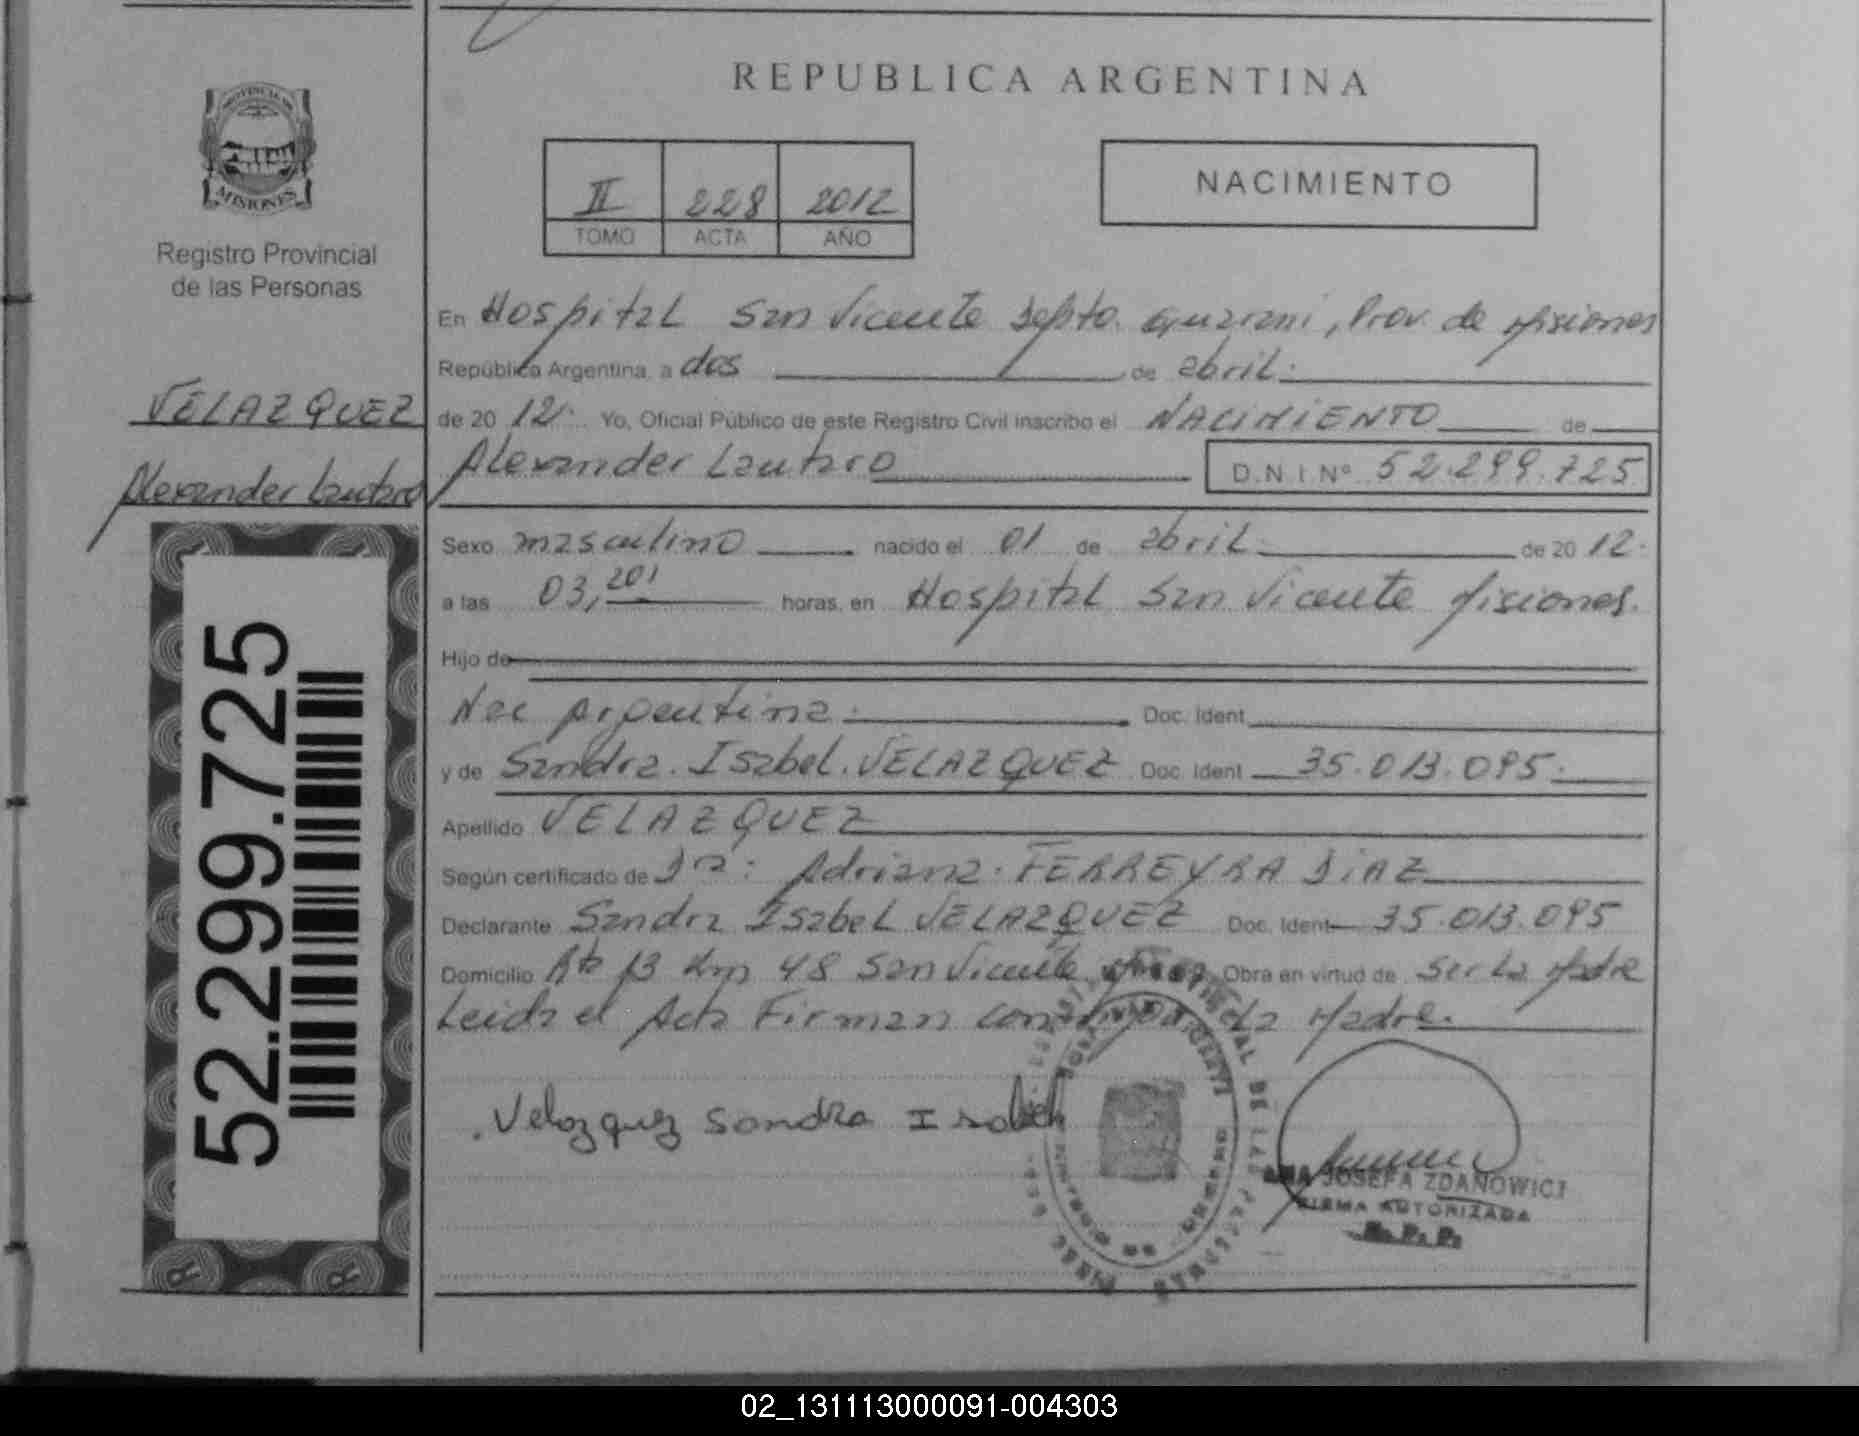 REPUBLICA ARGENTINA
PROVINCIA DE
MISIONES
Registro Provincial
de las Personas
II 228 2012
TOMO ACTA AÑO
NACIMIENTO
VELAZQUEZ
Alexander Lautaro
52.299.725
En Hospital San Vicente Depto. Guarani, Prov. de Misiones
República Argentina, a dos de abril.
de 20 12. Yo, Oficial Público de este Registro Civil inscribo el NACIMIENTO de
Alexander Lautaro D.N.I. Nº 52.299.725
Sexo masculino nacido el 01 de abril. de 20 12.
a las 03,20' horas, en Hospital San Vicente Misiones.
Hijo de
Nac Argentina. Doc. Ident.
y de Sandra. Isabel. VELAZQUEZ Doc. Ident 35.013.095.
Apellido VELAZQUEZ
Según certificado de Dra: Adriana. FERREYRA DIAZ
Declarante Sandra Isabel VELAZQUEZ Doc. Ident 35.013.095
Domicilio Rta 13 Km 48 San Vicente Obra en virtud de ser La Madre
Leida el Acta Firman La Madre.
Velazquez Sandra Isabel
ANA JOSEFA ZDANOWICZ
FIRMA AUTORIZADA
R. P. P.
02_131113000091-004303